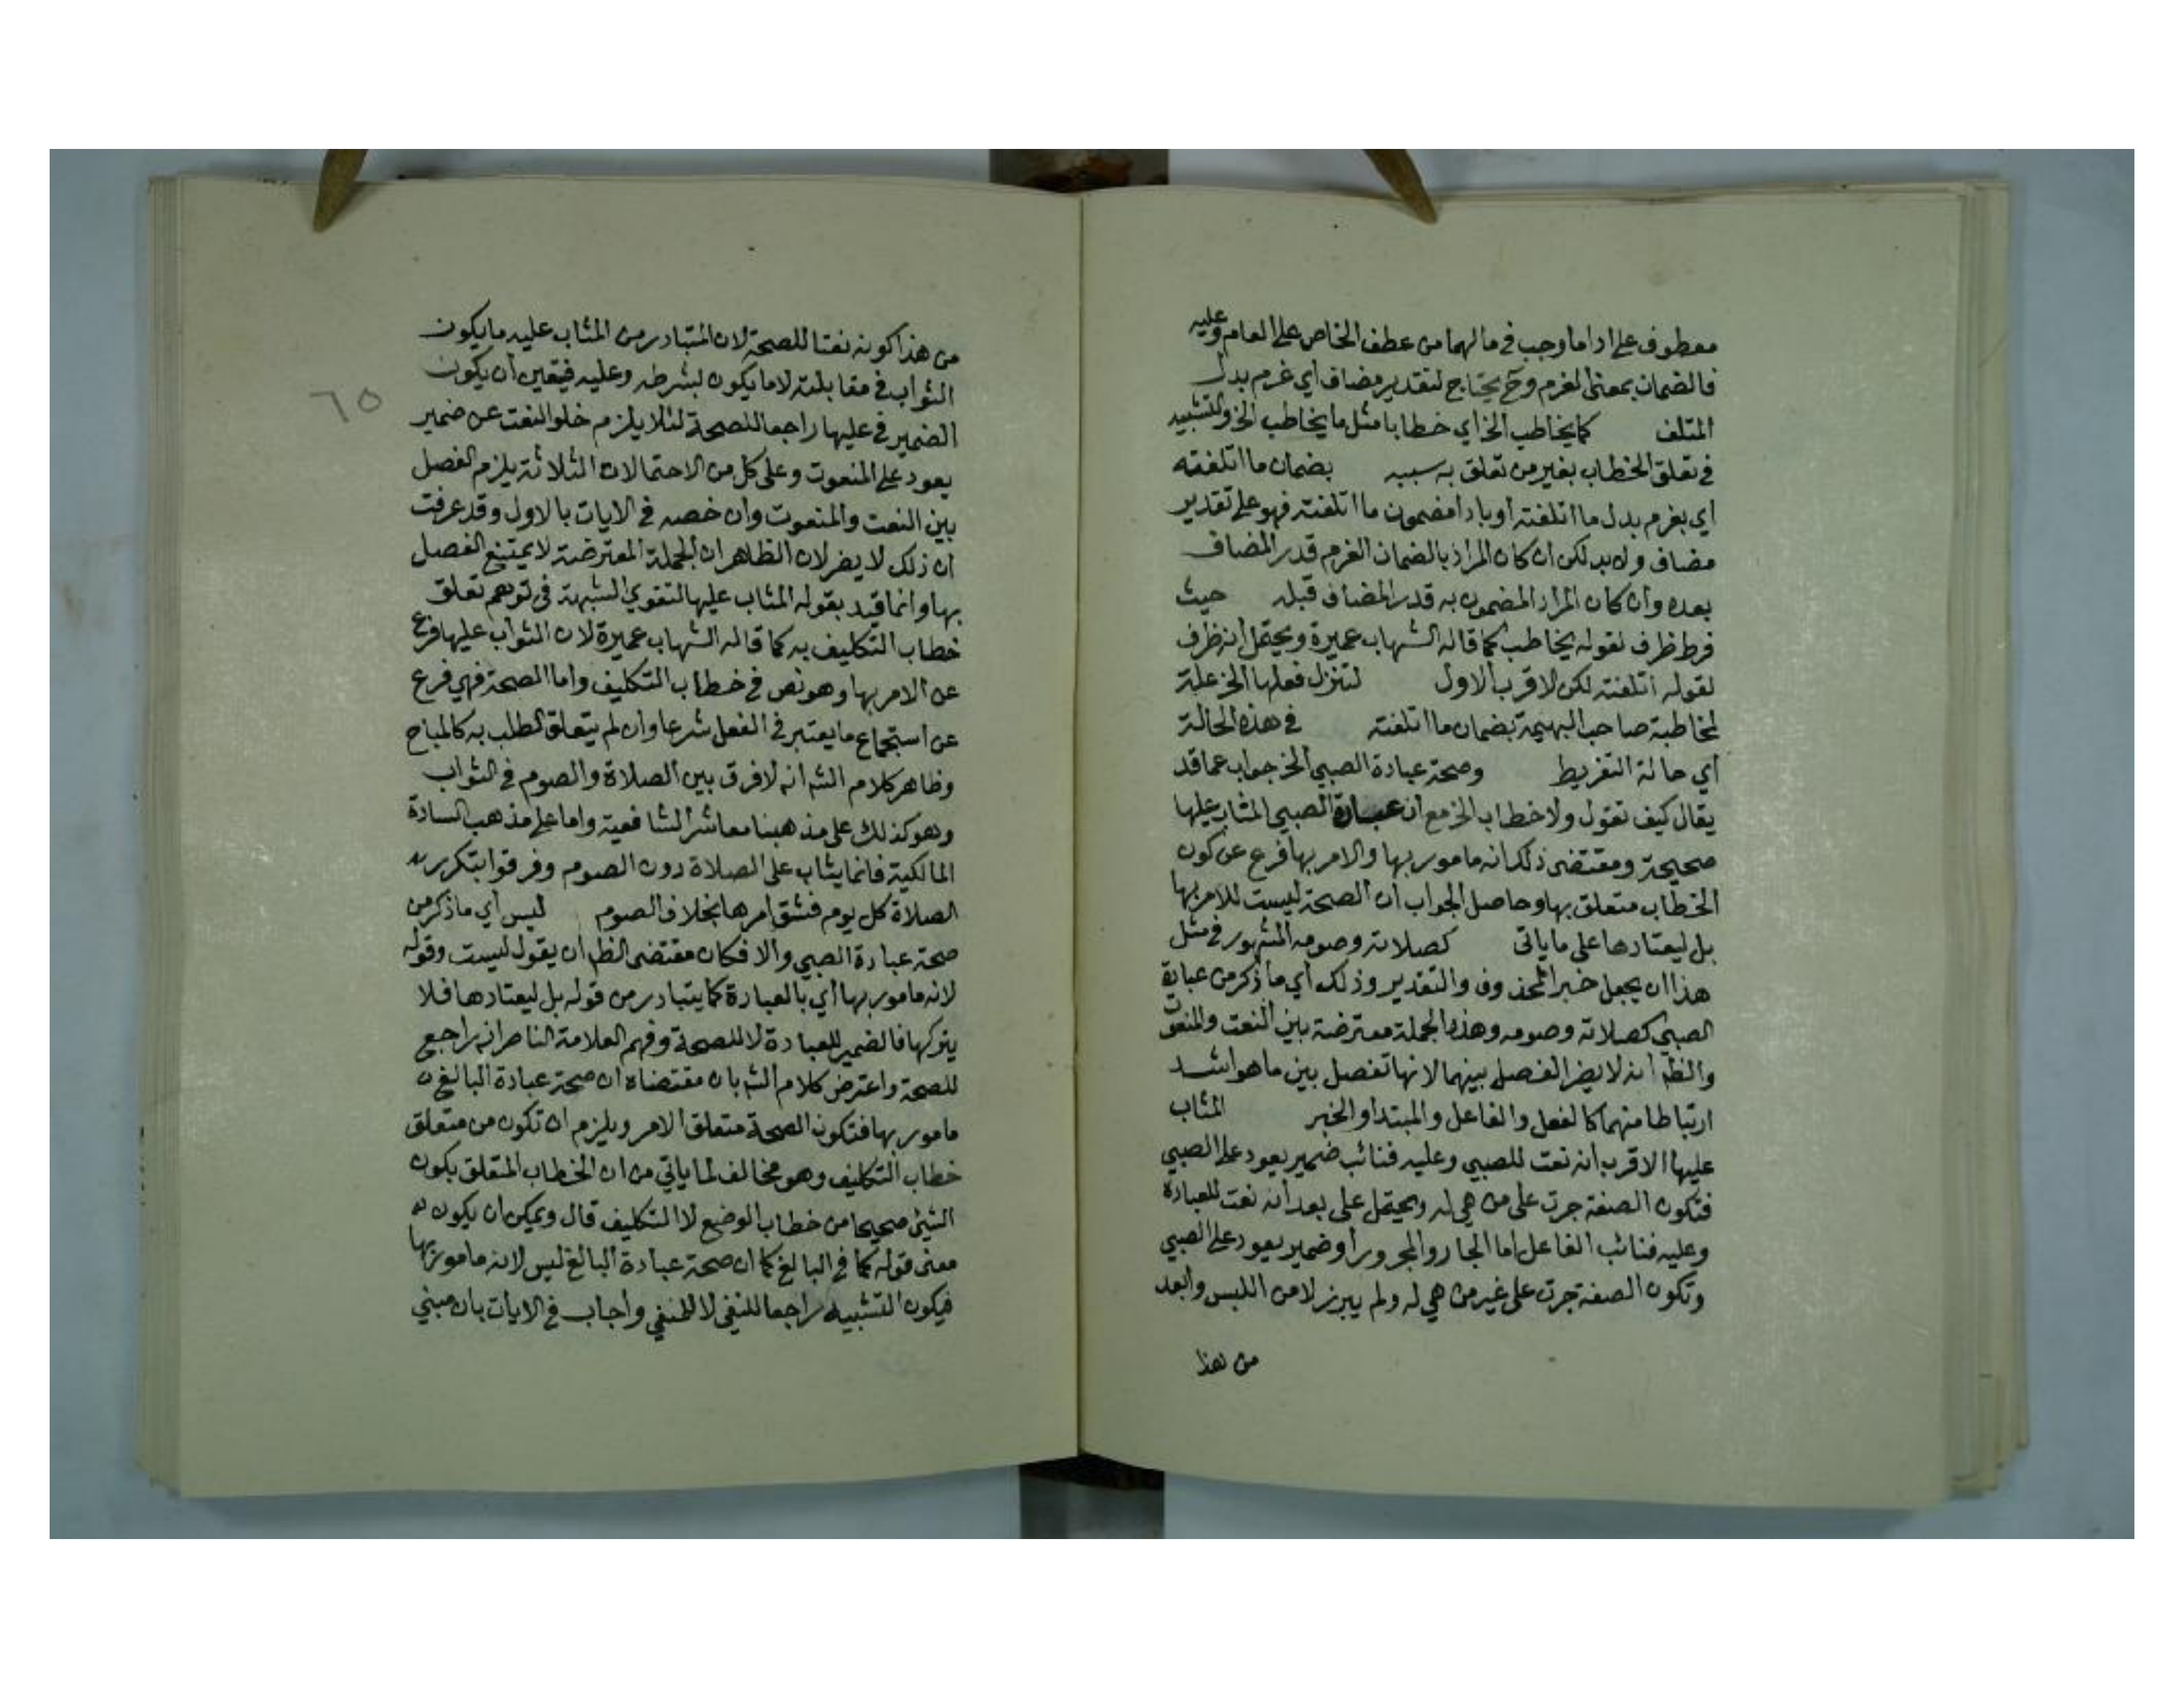 معطوف على اداء ما وجب في مالهما من عطف الخاص على العام وعليه
فالضمان بمعنى الغرم وح يحتاج لتقدير مضاف اي غرم بدل
المتلف كما يخاطب الخ اي خطابا مثل ما يخاطب الخ والتشبيه
في تعلق الخطاب بغير من تعلق به سببه بضمان ما اتلفته
اي بغرم بدل ما اتلفته أو باداء مضمون ما اتلفته فهو على تقدير
مضاف ولا بد لكن ان كان المراد بالضمان الغرم قدر المضاف
بعده وان كان المراد المضمون به قدر المضاف قبله حيث
فرط ظرف لقوله يخاطب كما قاله الشهاب عميرة ويحتمل أنه ظرف
لقوله أتلفته لكن الاقرب الاول لتنزل فعلها الخ علة
لمخاطبة صاحب البهيمة بضمان ما اتلفته في هذه الحالة
أي حالة التفريط وصحة عبادة الصبي الخ جواب عما قد
يقال كيف تقول ولا خطاب الخ مع ان عبادة الصبي المثاب عليها
صحيحة ومقتضى ذلك انه مامور بها والامر بها فرع عن كون
الخطاب متعلق بها وحاصل الجواب ان الصحة ليست للامر بها
بل ليعتادها على ما ياتى كصلاته وصومه المشهور في مثل
هذا ان يجعل خبرا لمحذوف والتقدير وذلك أي ما ذكر من عبادة
الصبي كصلاته وصومه وهذه الجملة معترضة بين النعت والمنعوت
والظ انه لا يضر الفصل بينهما لانها تفصل بين ما هو اشد
ارتباطا منهما كالفعل والفاعل والمبتدا والخبر المثاب
عليها الاقرب انه نعت للصبي وعليه فنائب ضمير يعود على الصبي
فتكون الصفة جرت على من هي له ويحتمل على بعد أنه نعت للعبادة
وعليه فنائب الفاعل اما الجار والمجرور أو ضمير يعود على الصبي
وتكون الصفة جرت على غير من هي له ولم يبرز لامن اللبس وابعد
من هذا
٦٥
من هذا كونه نعتا للصحة لان المتبادر من المثاب عليه ما يكون
الثواب في مقابلته لا ما يكون لشرطه وعليه فيتعين أن يكون
الضمير في عليها راجعا للصحة لئلا يلزم خلو النعت عن ضمير
يعود على المنعوت وعلى كل من الاحتمالات الثلاثة يلزم الفصل
بين النعت والمنعوت وان خصه في الايات بالاول وقد عرفت
ان ذلك لا يضر لان الظاهر ان الجملة المعترضة لا يمتنع الفصل
بها وانما قيد بقوله المثاب عليها لتقوي الشبهة في توهم تعلق
خطاب التكليف به كما قاله الشهاب عميرة لان الثواب عليها فرع
عن الامر بها وهو نص في خطاب التكليف واما الصحة فهي فرع
عن استجماع ما يعتبر في الفعل شرعا وان لم يتعلق الطلب به كالمباح
وظاهر كلام الشه انه لا فرق بين الصلاة والصوم في الثواب
وهو كذلك على مذهبنا معاشر الشافعية واما على مذهب السادة
المالكية فانما يثاب على الصلاة دون الصوم وفرقوا بتكرر
الصلاة كل يوم فشق امرها بخلاف الصوم ليس أي ما ذكر من
صحة عبادة الصبي والا فكان مقتضى الظ ان يقول ليست وقوله
لانه مامور بها أي بالعبادة كما يتبادر من قوله بل ليعتادها فلا
يتركها فالضمير للعبادة لا للصحة وفهم العلامة الناصر انه راجع
للصحة واعترض كلام الشه بان مقتضاه ان صحة عبادة البالغ
مامور بها فتكون الصحة متعلق الامر ويلزم ان تكون من متعلق
خطاب التكليف وهو مخالف لما ياتي من ان الخطاب المتعلق بكون
الشيئ صحيحا من خطاب الوضع لا التكليف قال ويمكن ان يكون
معنى قوله كما في البالغ كما ان صحة عبادة البالغ ليس لانه مامور بها
فيكون التشبيه راجعا للنفي لا للمنفي وأجاب في الايات بان مبني